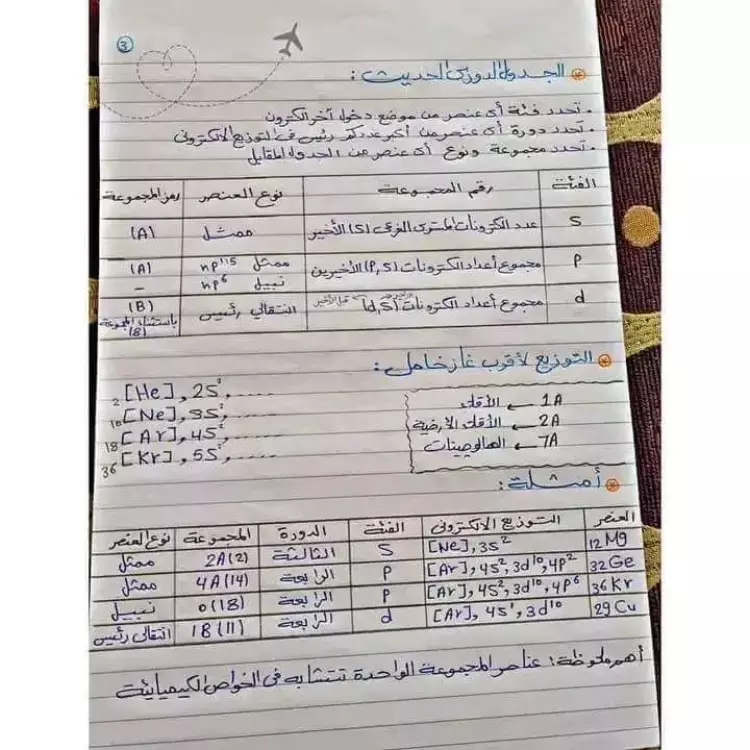 3
الجدول الدورى الحديث :
. تحدد فئة أى عنصر من موضع دخول آخر الكترون
. تحدد دورة أى عنصر من أكبر عدد كم رئيس فى التوزيع الالكترونى
. تحدد مجموعة ونوع أى عنصر من الجدول المقابل
الفئة رقم المجموعة نوع العنصر رمز المجموعة
S عدد الكترونات المستوى الفرعى (S) الأخير ممثل (A)
P مجموع أعداد الكترونات (P,S) الأخيرين ممثل np1:5 (A)
نبيل np6 -
d مجموع أعداد الكترونات (d,S) انتقالى رئيس (B)
باستثناء المجموعة (8)
التوزيع لأقرب غاز خامل :
2[He] , 2S², .....
10[Ne] , 3S², .....
18[Ar] , 4S², .....
36[Kr] , 5S², .....
1A ← الأقلاء
2A ← الأقلاء الأرضية
7A ← الهالوجينات
أمثلة :
العنصر التوزيع الالكترونى الفئة الدورة المجموعة نوع العنصر
12Mg [Ne], 3S² S الثالثة 2A(2) ممثل
32Ge [Ar], 4S², 3d¹⁰, 4P² P الرابعة 4A(14) ممثل
36Kr [Ar], 4S², 3d¹⁰, 4P⁶ P الرابعة 0(18) نبيل
29Cu [Ar], 4S¹, 3d¹⁰ d الرابعة 1B(11) انتقالى رئيس
أهم ملحوظة : عناصر المجموعة الواحدة تتشابه فى الخواص الكيميائية